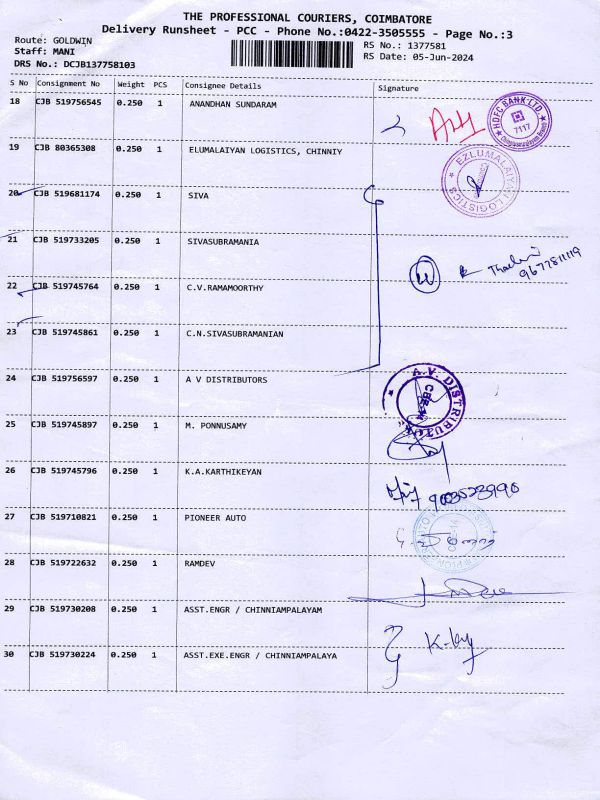 THE PROFESSIONAL COURIERS, COIMBATORE
Delivery Runsheet - PCC - Phone No.:0422-3505555 - Page No.:3
Route: GOLDWIN
RS No.: 1377581
Staff: MANI
RS Date: 05-Jun-2024
DRS No.: DCJB137758103
S No Consignment No Weight PCS Consignee Details Signature
18 CJB 519756545 0.250 1 ANANDHAN SUNDARAM
HDFC BANK LTD.
7117
19 CJB 80365308 0.250 1 ELUMALAIYAN LOGISTICS, CHINNIY
EZLUMALAIYAN LOGISTICS
20 CJB 519681174 0.250 1 SIVA
21 CJB 519733205 0.250 1 SIVASUBRAMANIA
9677811119
22 CJB 519745764 0.250 1 C.V.RAMAMOORTHY
23 CJB 519745861 0.250 1 C.N.SIVASUBRAMANIAN
24 CJB 519756597 0.250 1 A V DISTRIBUTORS
A.V. DISTRIBUTORS
25 CJB 519745897 0.250 1 M. PONNUSAMY
26 CJB 519745796 0.250 1 K.A.KARTHIKEYAN
27 CJB 519710821 0.250 1 PIONEER AUTO
28 CJB 519722632 0.250 1 RAMDEV
29 CJB 519730208 0.250 1 ASST.ENGR / CHINNIAMPALAYAM
30 CJB 519730224 0.250 1 ASST.EXE.ENGR / CHINNIAMPALAYA